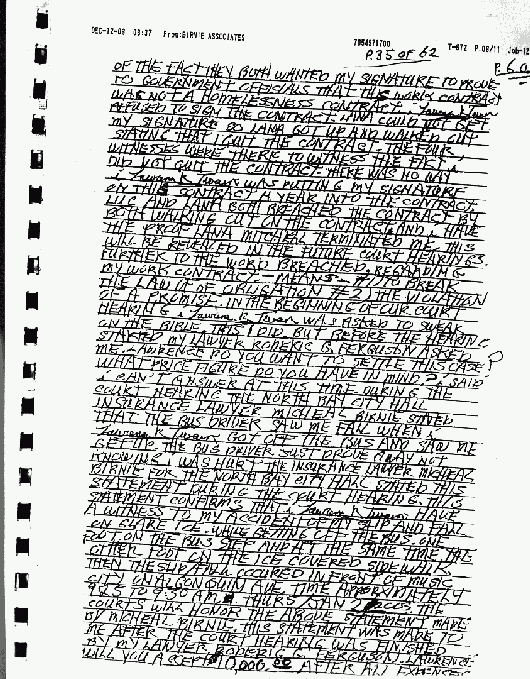 DEC-12-08 09:37 From:BIRNIE ASSOCIATES 7054971700 T-672 P.08/11 Job-12
P.35 OF 62
P.6
OF THE FACT THEY BOTH WANTED MY SIGNATURE TO PROVE
TO GOVERNMENT OFFICIALS THAT THIS WORK CONTRACT
WAS NOT A HOMELESSNESS CONTRACT. I
REFUSED TO SIGN THE CONTRACT. LANA COULD NOT GET
MY SIGNATURE SO LANA GOT UP AND WALKED OUT
STATING THAT I QUIT THE CONTRACT. THE FOUR
WITNESSES WERE THERE TO WITNESS THE FACT I
DID NOT QUIT THE CONTRACT. THERE WAS NO WAY
I WAS PUTTING MY SIGNATURE
ON THIS CONTRACT A YEAR INTO THE CONTRACT.
LUC AND LANA BOTH BREACHED THE CONTRACT BY
BOTH WALKING OUT ON THE CONTRACT AND I HAVE
THE PROOF LANA MITCHELL TERMINATED ME. THIS
WILL BE REVEALED IN THE FUTURE COURT HEARINGS.
FURTHER TO THE WORD BREACHED, REGARDING
MY WORK CONTRACT - MEANS - #1) TO BREAK
THE LAW OF OBLIGATION #2) THE VIOLATION
OF A PROMISE. IN THE BEGINNING OF OUR COURT
HEARING I WAS ASKED TO SWEAR
ON THE BIBLE, THIS I DID. BUT BEFORE THE HEARING
STARTED MY LAWYER RODERIC G. FERGUSON ASKED
ME - LAWRENCE DO YOU WANT TO SETTLE THIS CASE?
WHAT PRICE FIGURE DO YOU HAVE IN MIND? I SAID
I CAN'T ANSWER AT THIS TIME. DURING THE
COURT HEARING THE NORTH BAY CITY HALL
INSURANCE LAWYER MICHEAL BIRNIE STATED
THAT THE BUS DRIVER SAW ME FALL WHEN I
GOT OFF THE BUS AND SAW ME
GET UP. THE BUS DRIVER JUST DROVE AWAY NOT
KNOWING I WAS HURT. THE INSURANCE LAWYER MICHEAL
BIRNIE FOR THE NORTH BAY CITY HALL STATED THIS
STATEMENT DURING THE COURT HEARING. THIS
STATEMENT CONFIRMS THAT I HAVE
A WITNESS TO MY ACCIDENT OF MY SLIP AND FALL
ON GLARE ICE. WHILE GETTING OFF THE BUS ONE
FOOT ON THE BUS STEP AND AT THE SAME TIME THE
OTHER FOOT ON THE ICE COVERED SIDEWALK
THEN THE SLIP/FALL OCCURED IN FRONT OF MUSIC
CITY ON ALGONQUIN AVE. TIME APPROXIMATELY
9:25 TO 9:30 A.M. THURS JAN THE
COURTS WILL HONOR THE ABOVE STATEMENT MADE
BY MICHEAL BIRNIE. THIS STATEMENT WAS MADE TO
ME AFTER THE COURT HEARING WAS FINISHED
BY MY LAWYER RODERIC G. FERGUSON. LAWRENCE
WILL YOU ACCEPT $10,000.00 AFTER ALL EXPENSES